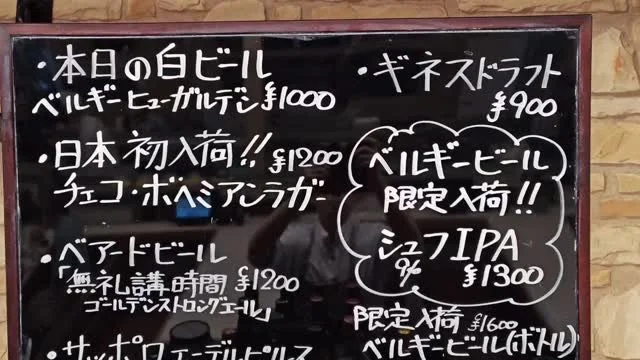 ・本日の白ビール
ベルギーヒューガルデン ¥1000
・日本初入荷!! ¥1200
チェコ・ボヘミアンラガー
・ベアードビール
「無礼講時間 ¥1200
ゴールデンストロングエール」
・サッポロエーデルピルス
・ギネスドラフト
¥900
ベルギービール
限定入荷!!
シュフIPA
¥1300
限定入荷 ¥1600
ベルギービール(ボトル)